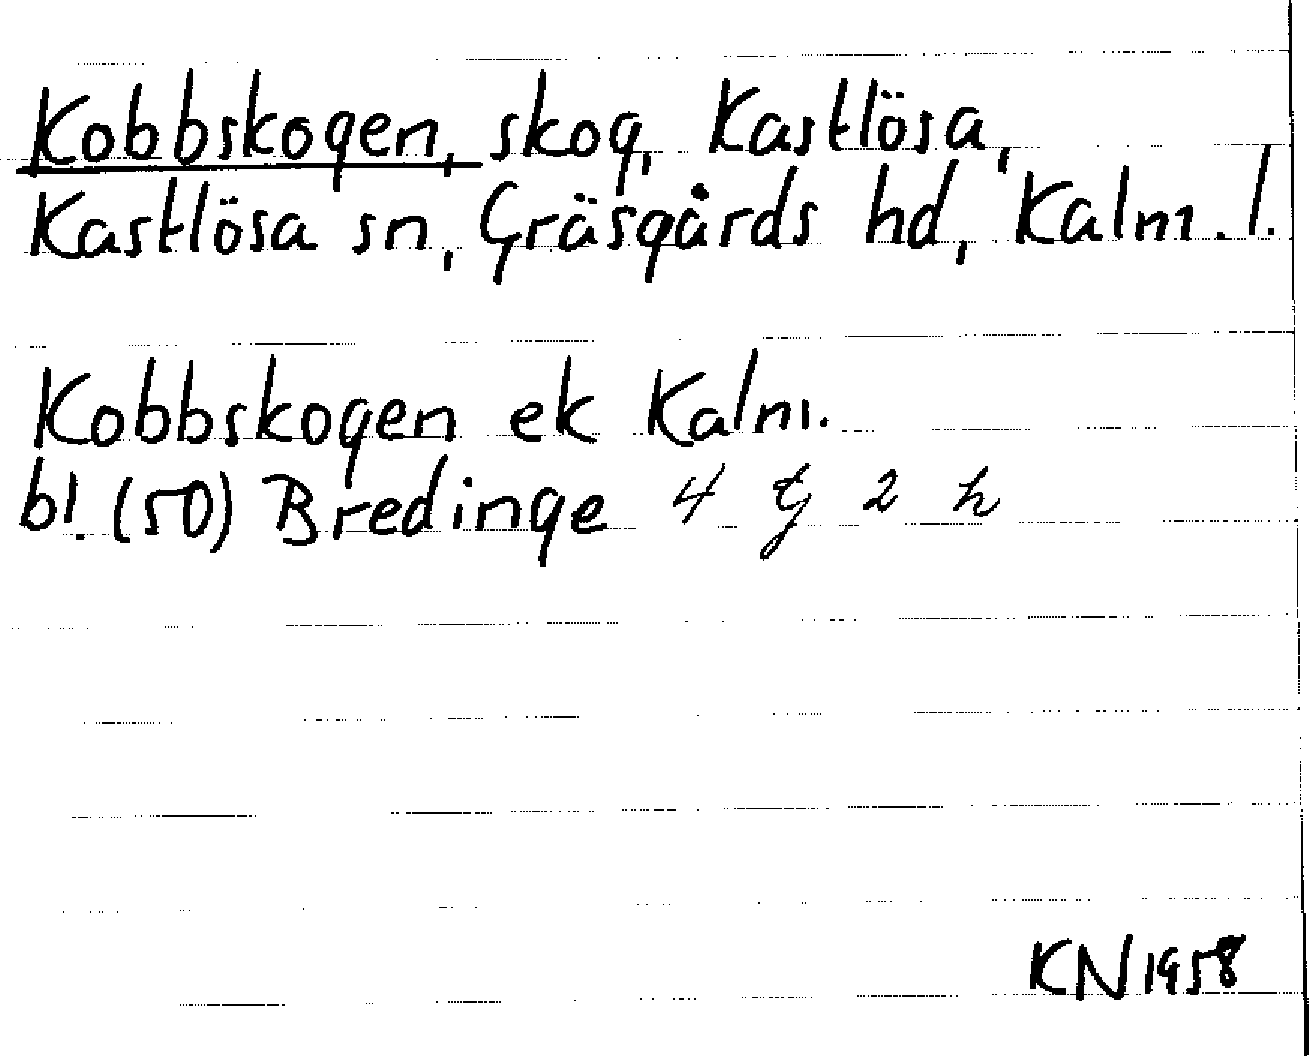 Kobbskogen, skog, Kastlösa,
Kastlösa sn, Gräsgårds hd, Kalm. l.
Kobbskogen ek Kalm.
bl. (50) Bredinge 4 g 2 h
KN 1958